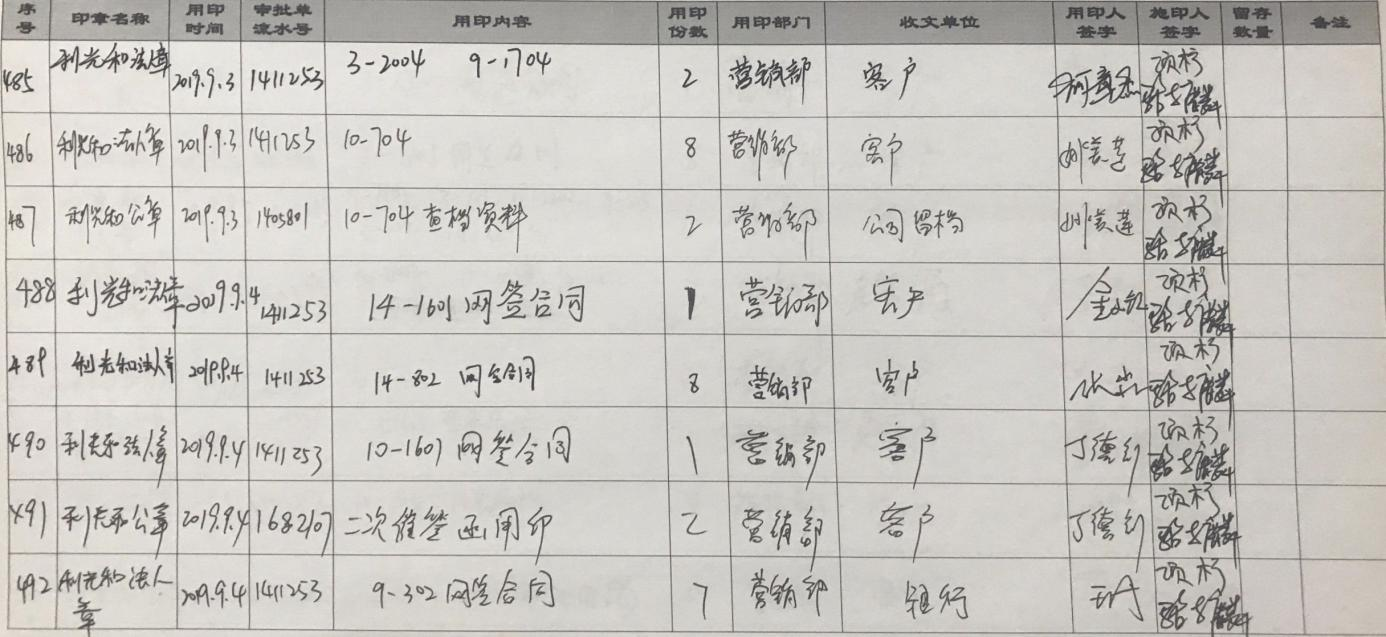 序号 印章名称 用印时间 审批单流水号 用印内容 用印份数 用印部门 收文单位 用印人签字 施印人签字 留存数量 备注
485 利光和法章 2019.9.3 1411253 3-2004 9-1704 2 营销部 客户
486 利光和法人章 2019.9.3 1411253 10-704 8 营销部 客户
487 利光和公章 2019.9.3 1405801 10-704 查档资料 2 营销部 公司留档
488 利光和法章 2019.9.4 1411253 14-1601 网签合同 1 营销部 客户
489 利光和法人章 2019.9.4 1411253 14-802 网签合同 8 营销部 客户
490 利光和法人章 2019.9.4 1411253 10-1601 网签合同 1 营销部 客户
491 利光和公章 2019.9.4 1682107 二次催签函用印 2 营销部 客户
492 利光和法人章 2019.9.4 1411253 9-302 网签合同 7 营销部 银行